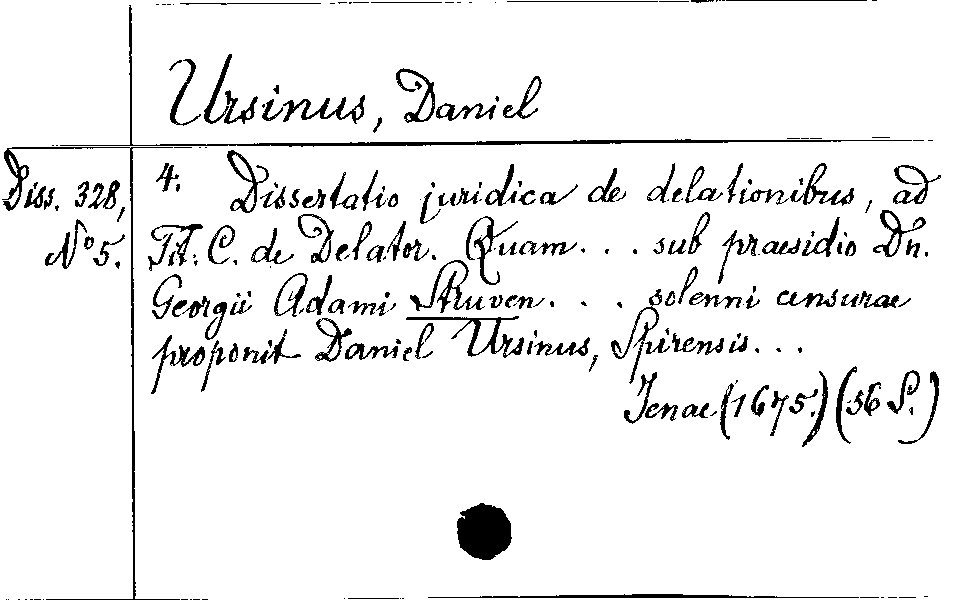 Ursinus, Daniel
Diss. 328,
No 5.
4. Dissertatio juridica de delationibus, ad
Tit. C. de Delator. Quam . . . sub praesidio Dn.
Georgii Adami Struven . . . solenni censurae
proponit Daniel Ursinus, Spirensis . . .
Jenae (1675.) (56 S.)